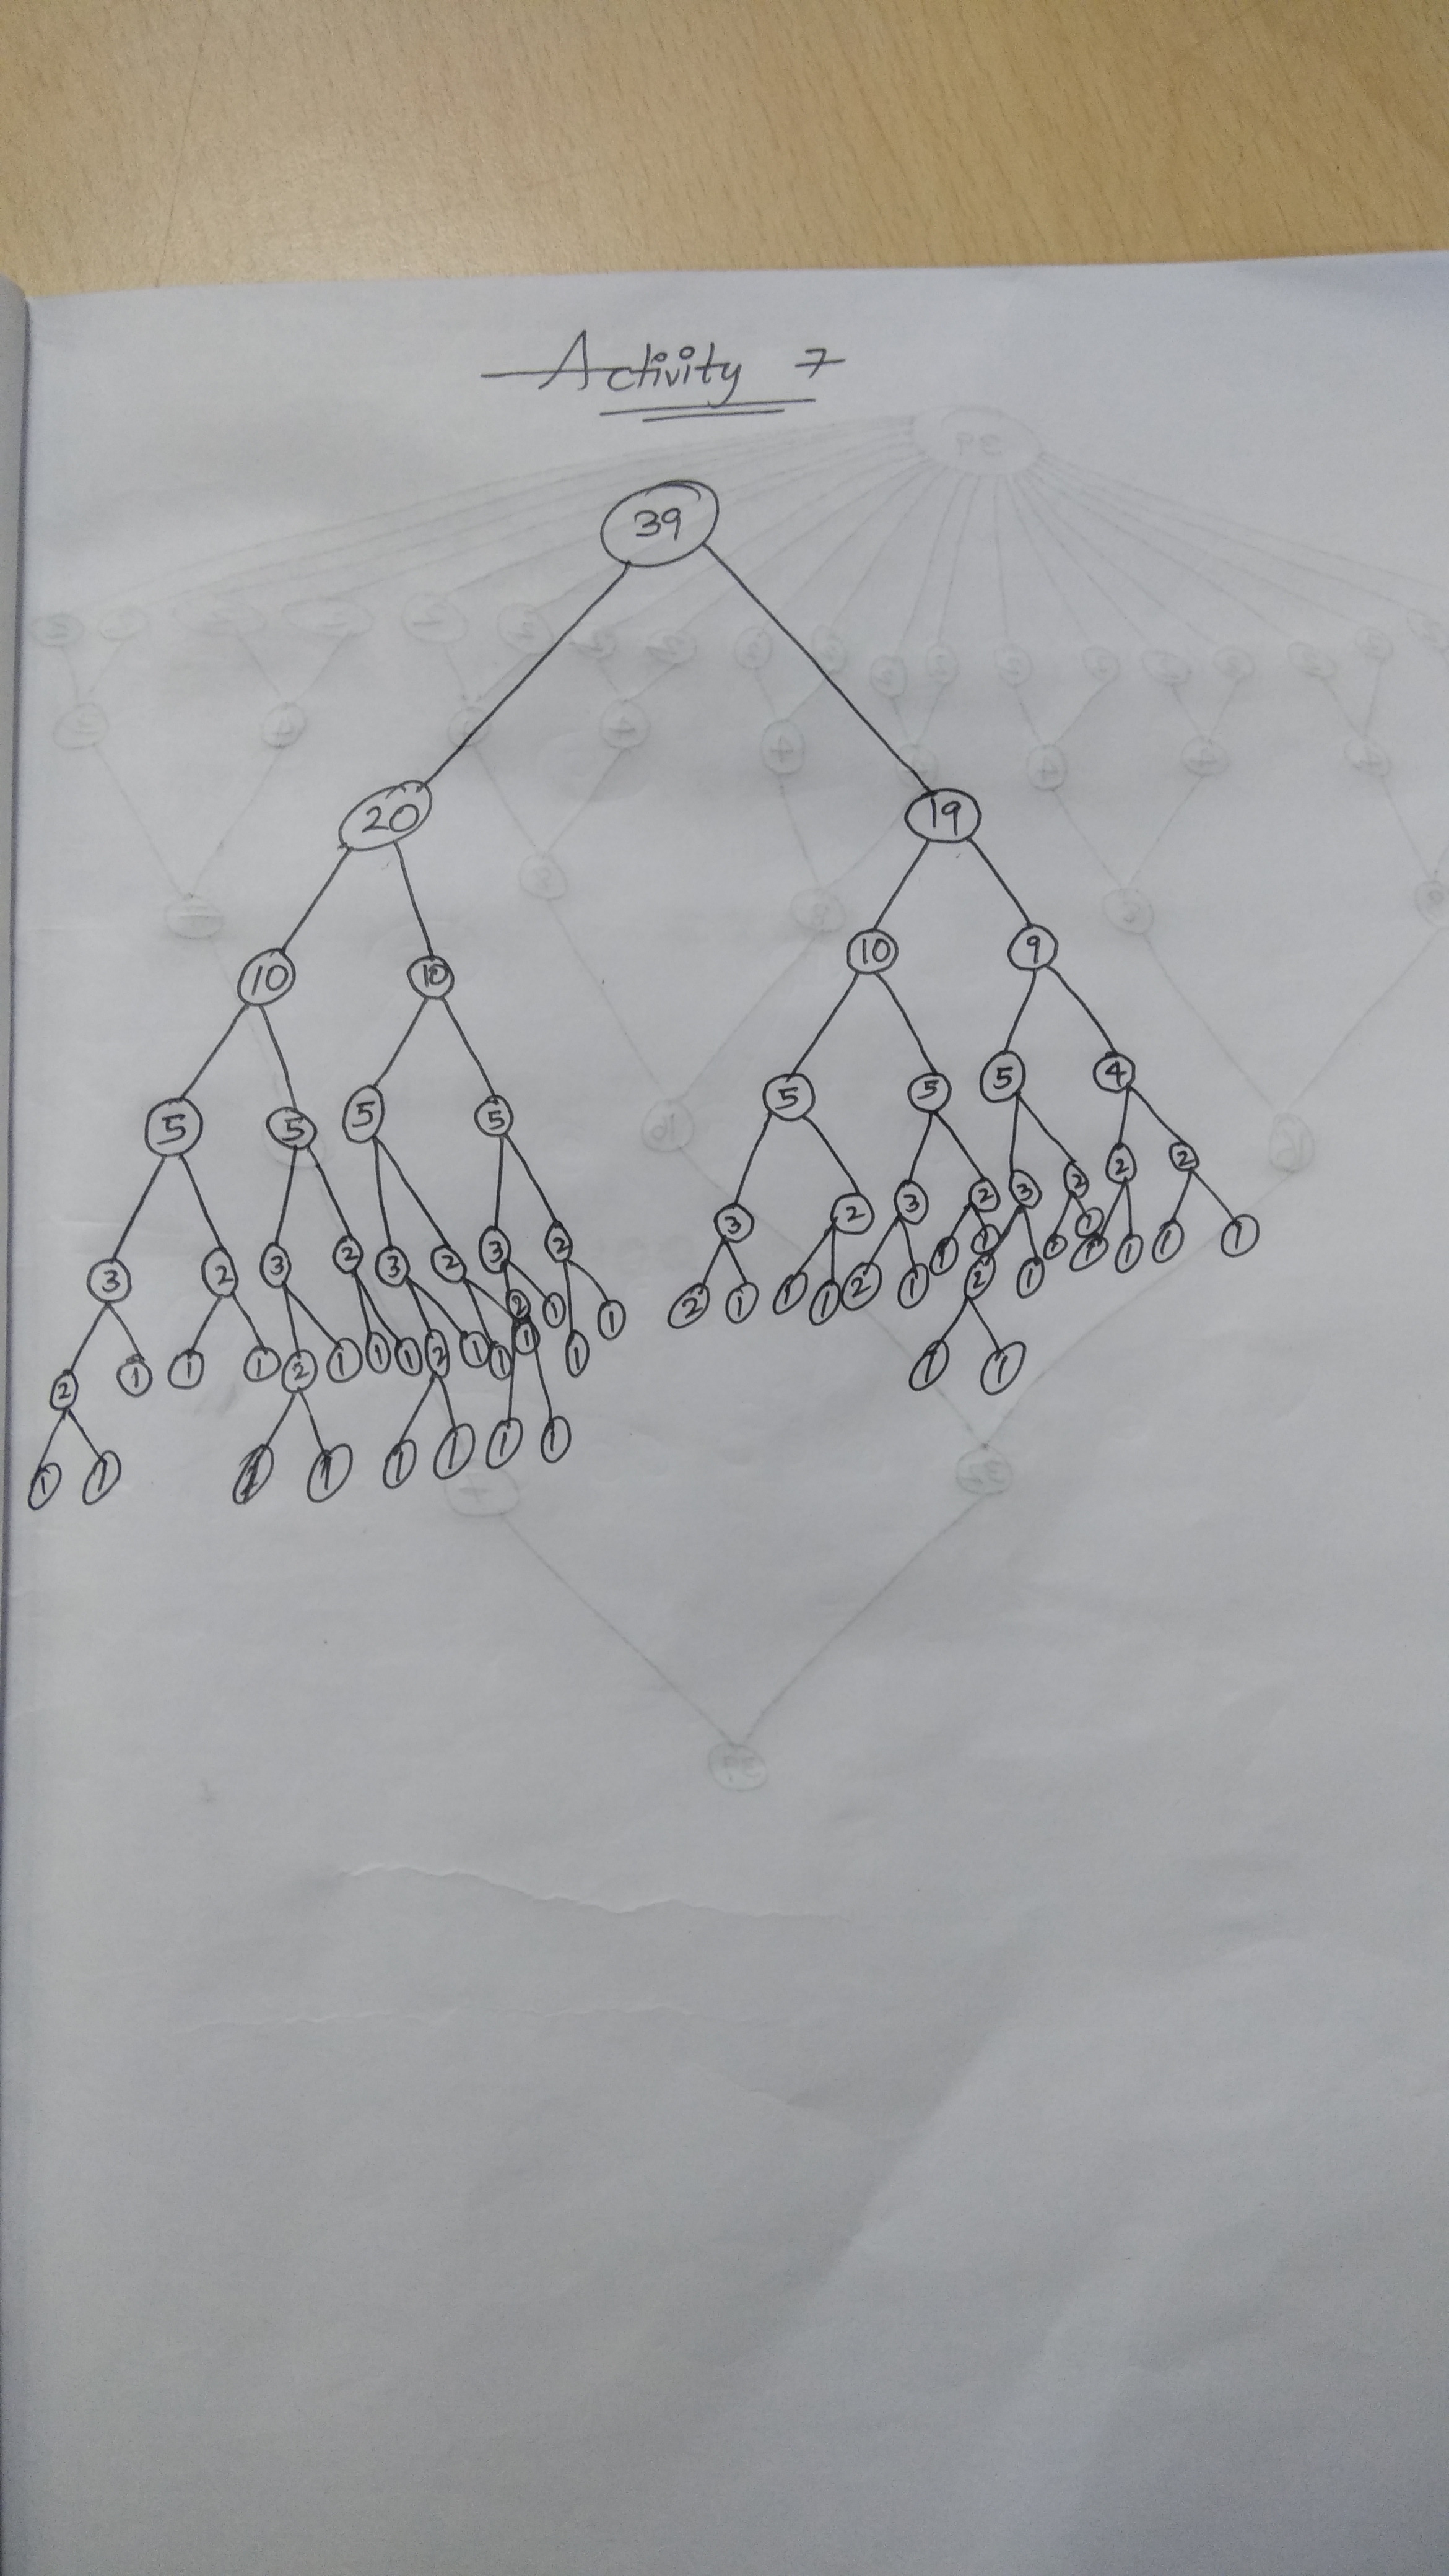 Activity 7
39
20 19
10 10 10 9
5 5 5 5 5 5 5 4
3 2 3 2 3 2 3 2 3 2 3 2 3 2 2 2
2 1 1 1 2 1 1 1 2 1 1 1 2 1 1 1 2 1 1 1 2 1 1 1 2 1 1 1 1 1 1 1
1 1 1 1 1 1 1 1 1 1